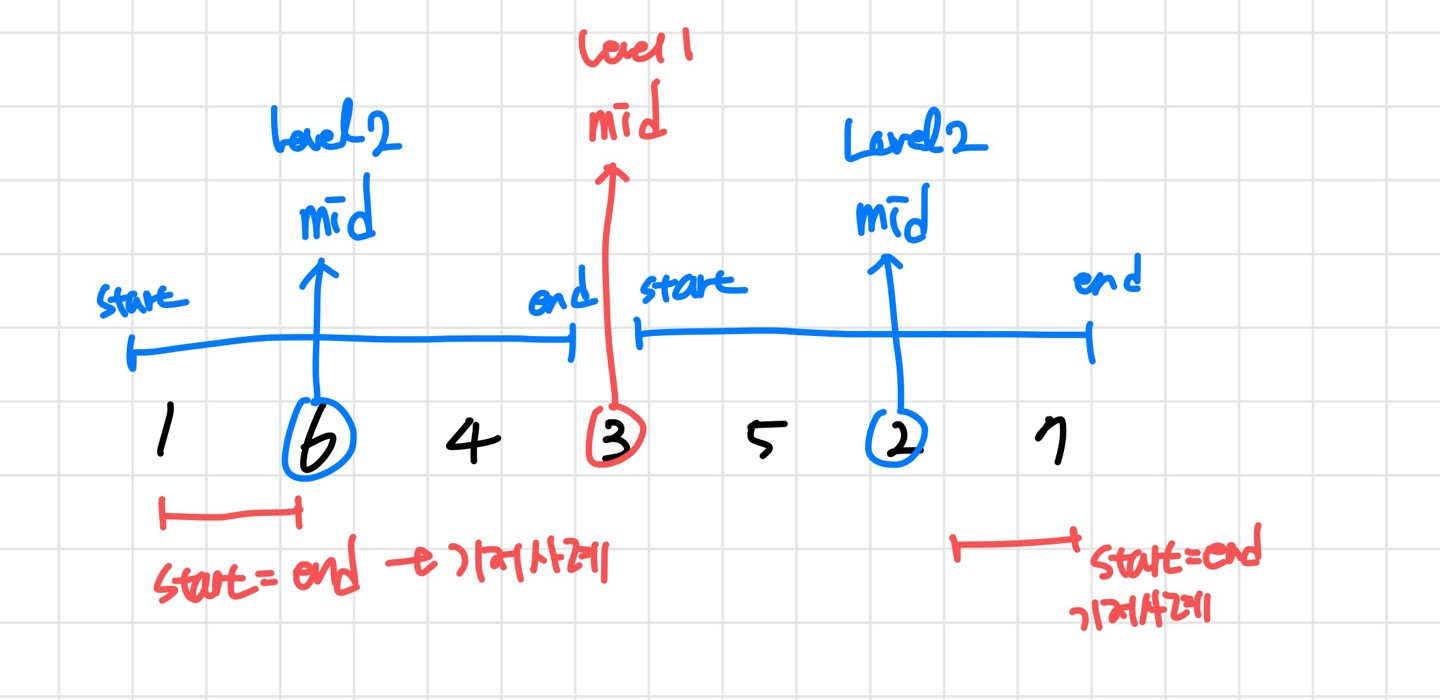 Level 1
mid
Level 2
mid
Level 2
mid
start
end
start
end
1 6 4 3 5 2 7
start = end → 기저사례
start = end
기저사례